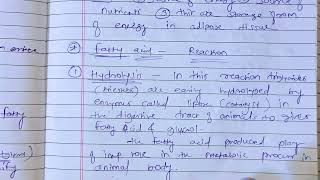 nutrients ③ this are storage form
of energy in adipose tissue
* Fatty acid - Reaction
① Hydrolysis - In this reaction
are easily hydrolysed by
enzymes called lipase (catalyst) in
the digestive tract of animals to gives
fatty acid & glycerol.
the fatty acid produced play
of imp role in the metabolic process in
animal body.
fatty